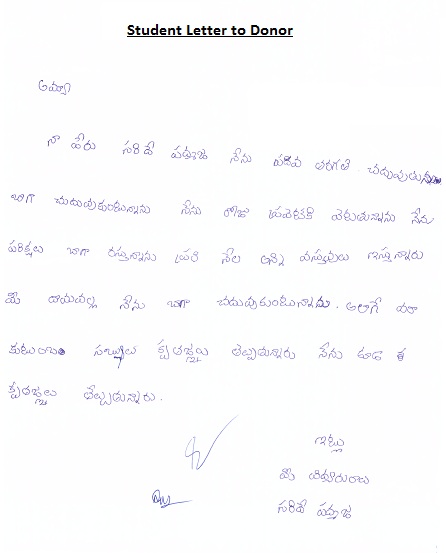 Student Letter to Donor
అమ్మా
నా పేరు సరిదే పద్మజ నేను పదివ తరగతి చదువుతున్నాను
బాగా చదువుకుంటున్నాను నేను రోజు ప్రవేటుకి వెళుతున్నాను నేను
పరిక్షలు బాగా రస్తున్నాను ప్రతి నేల అన్ని వస్తువులు ఇస్తున్నారు
మీ దాయవల్ల నేను బాగా చదువుకుంటున్నాను. అలాగే మా
కుటుంబం సబ్యులు కృతజ్ఞలు తెల్పుతున్నారు నేను కూడా
కృతజ్ఞలు తేల్పుడున్నారు.
ఇట్లు
మీ
సరిదే పద్మజ